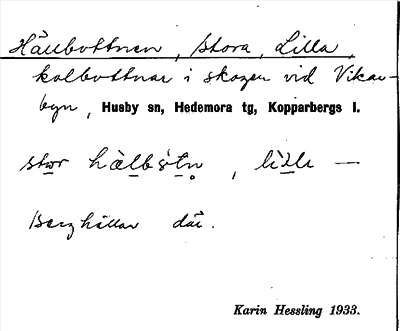 Hällbottnen, Stora, Lilla
kolbottnar i skogen vid Vikar-
byn, Husby sn, Hedemora tg, Kopparbergs l.
stor , lille —
Berghällar där.
Karin Hessling 1933.